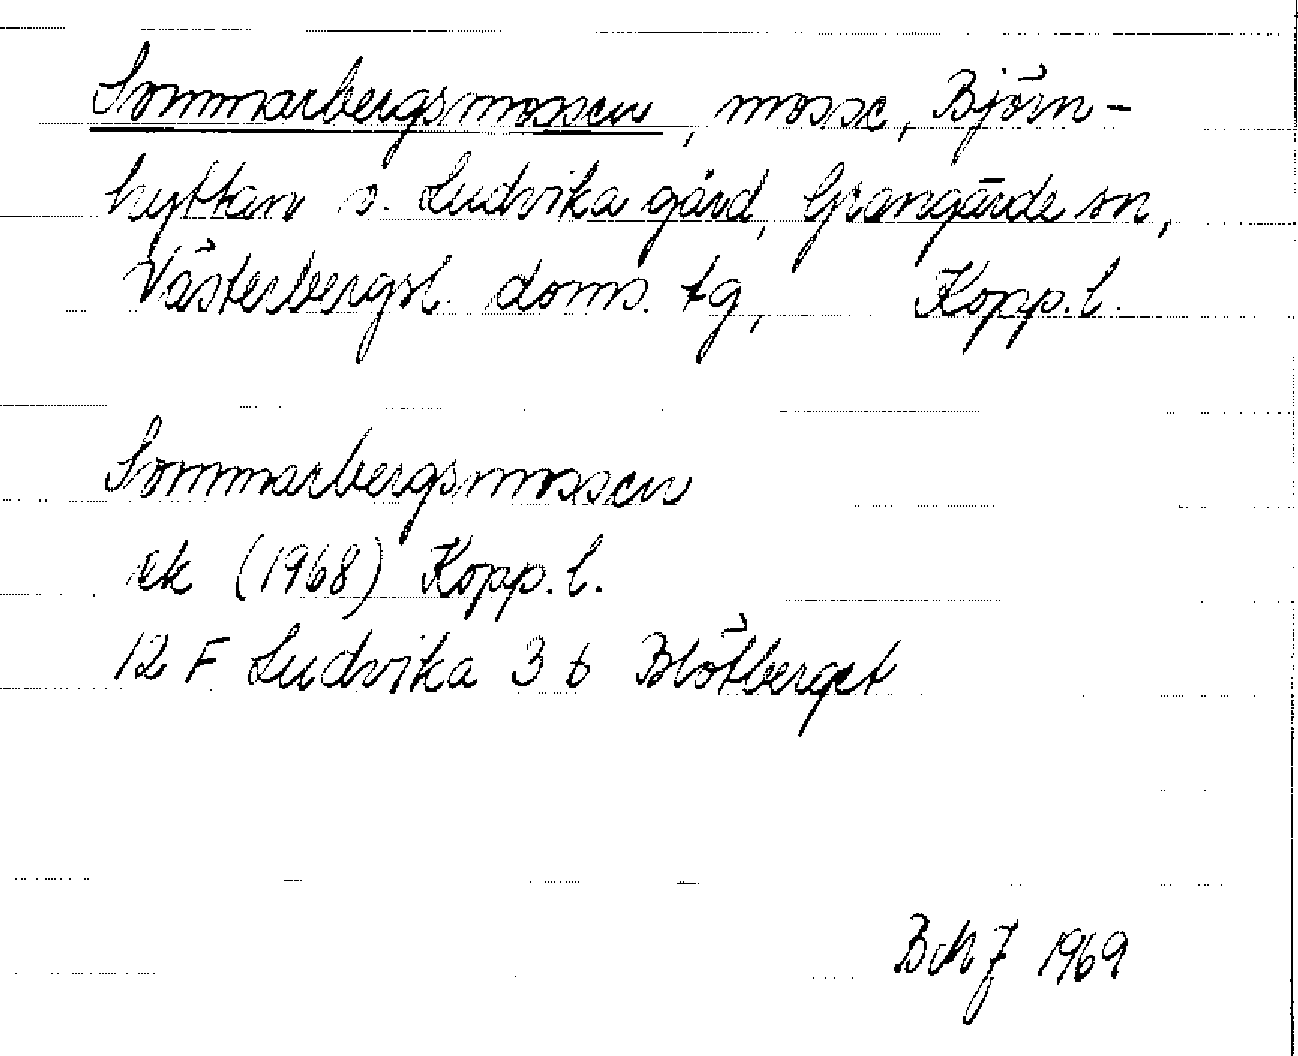 Sommarbergsmossen, mosse, Björn-
hyttan o. Ludvika gård, Grangärde sn,
Västerbergsl. doms. tg, Kopp. l.
Sommarbergsmossen
ek (1968) Kopp. l.
12 F Ludvika 3 b Blötberget
BMJ 1969